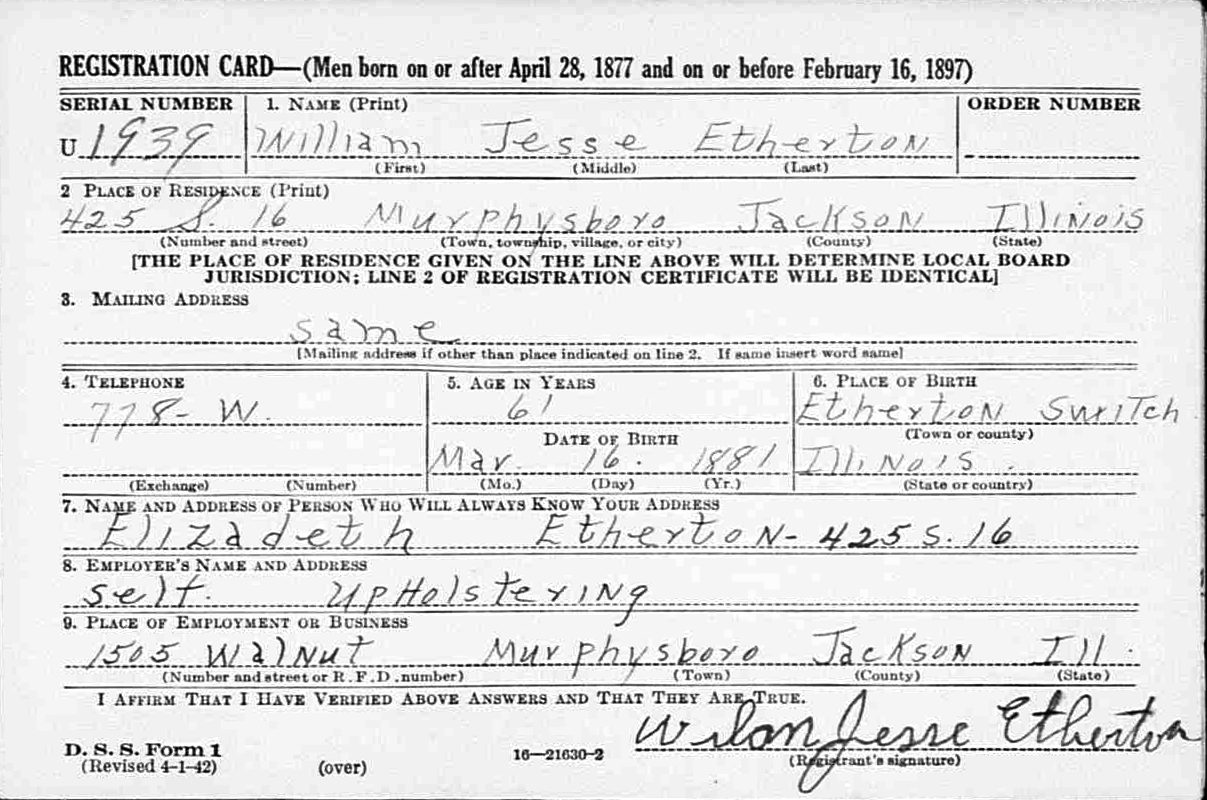 REGISTRATION CARD—(Men born on or after April 28, 1877 and on or before February 16, 1897)
SERIAL NUMBER 1. NAME (Print) ORDER NUMBER
U 1939 William Jesse Etherton
(First) (Middle) (Last)
2 PLACE OF RESIDENCE (Print)
425 S. 16 Murphysboro Jackson Illinois
(Number and street) (Town, township, village, or city) (County) (State)
[THE PLACE OF RESIDENCE GIVEN ON THE LINE ABOVE WILL DETERMINE LOCAL BOARD
JURISDICTION; LINE 2 OF REGISTRATION CERTIFICATE WILL BE IDENTICAL]
3. MAILING ADDRESS
same
[Mailing address if other than place indicated on line 2. If same insert word same]
4. TELEPHONE 5. AGE IN YEARS 6. PLACE OF BIRTH
778-W. 61 Etherton Switch
DATE OF BIRTH (Town or county)
Mar. 16. 1881 Illinois.
(Exchange) (Number) (Mo.) (Day) (Yr.) (State or country)
7. NAME AND ADDRESS OF PERSON WHO WILL ALWAYS KNOW YOUR ADDRESS
Elizadeth Etherton - 425 S. 16
8. EMPLOYER'S NAME AND ADDRESS
self. UpHolstering
9. PLACE OF EMPLOYMENT OR BUSINESS
1505 Walnut Murphysboro Jackson Ill.
(Number and street or R. F. D. number) (Town) (County) (State)
I AFFIRM THAT I HAVE VERIFIED ABOVE ANSWERS AND THAT THEY ARE TRUE.
Jesse Etherton
D. S. S. Form 1
(Revised 4-1-42) (over) 16—21630-2 (Registrant's signature)